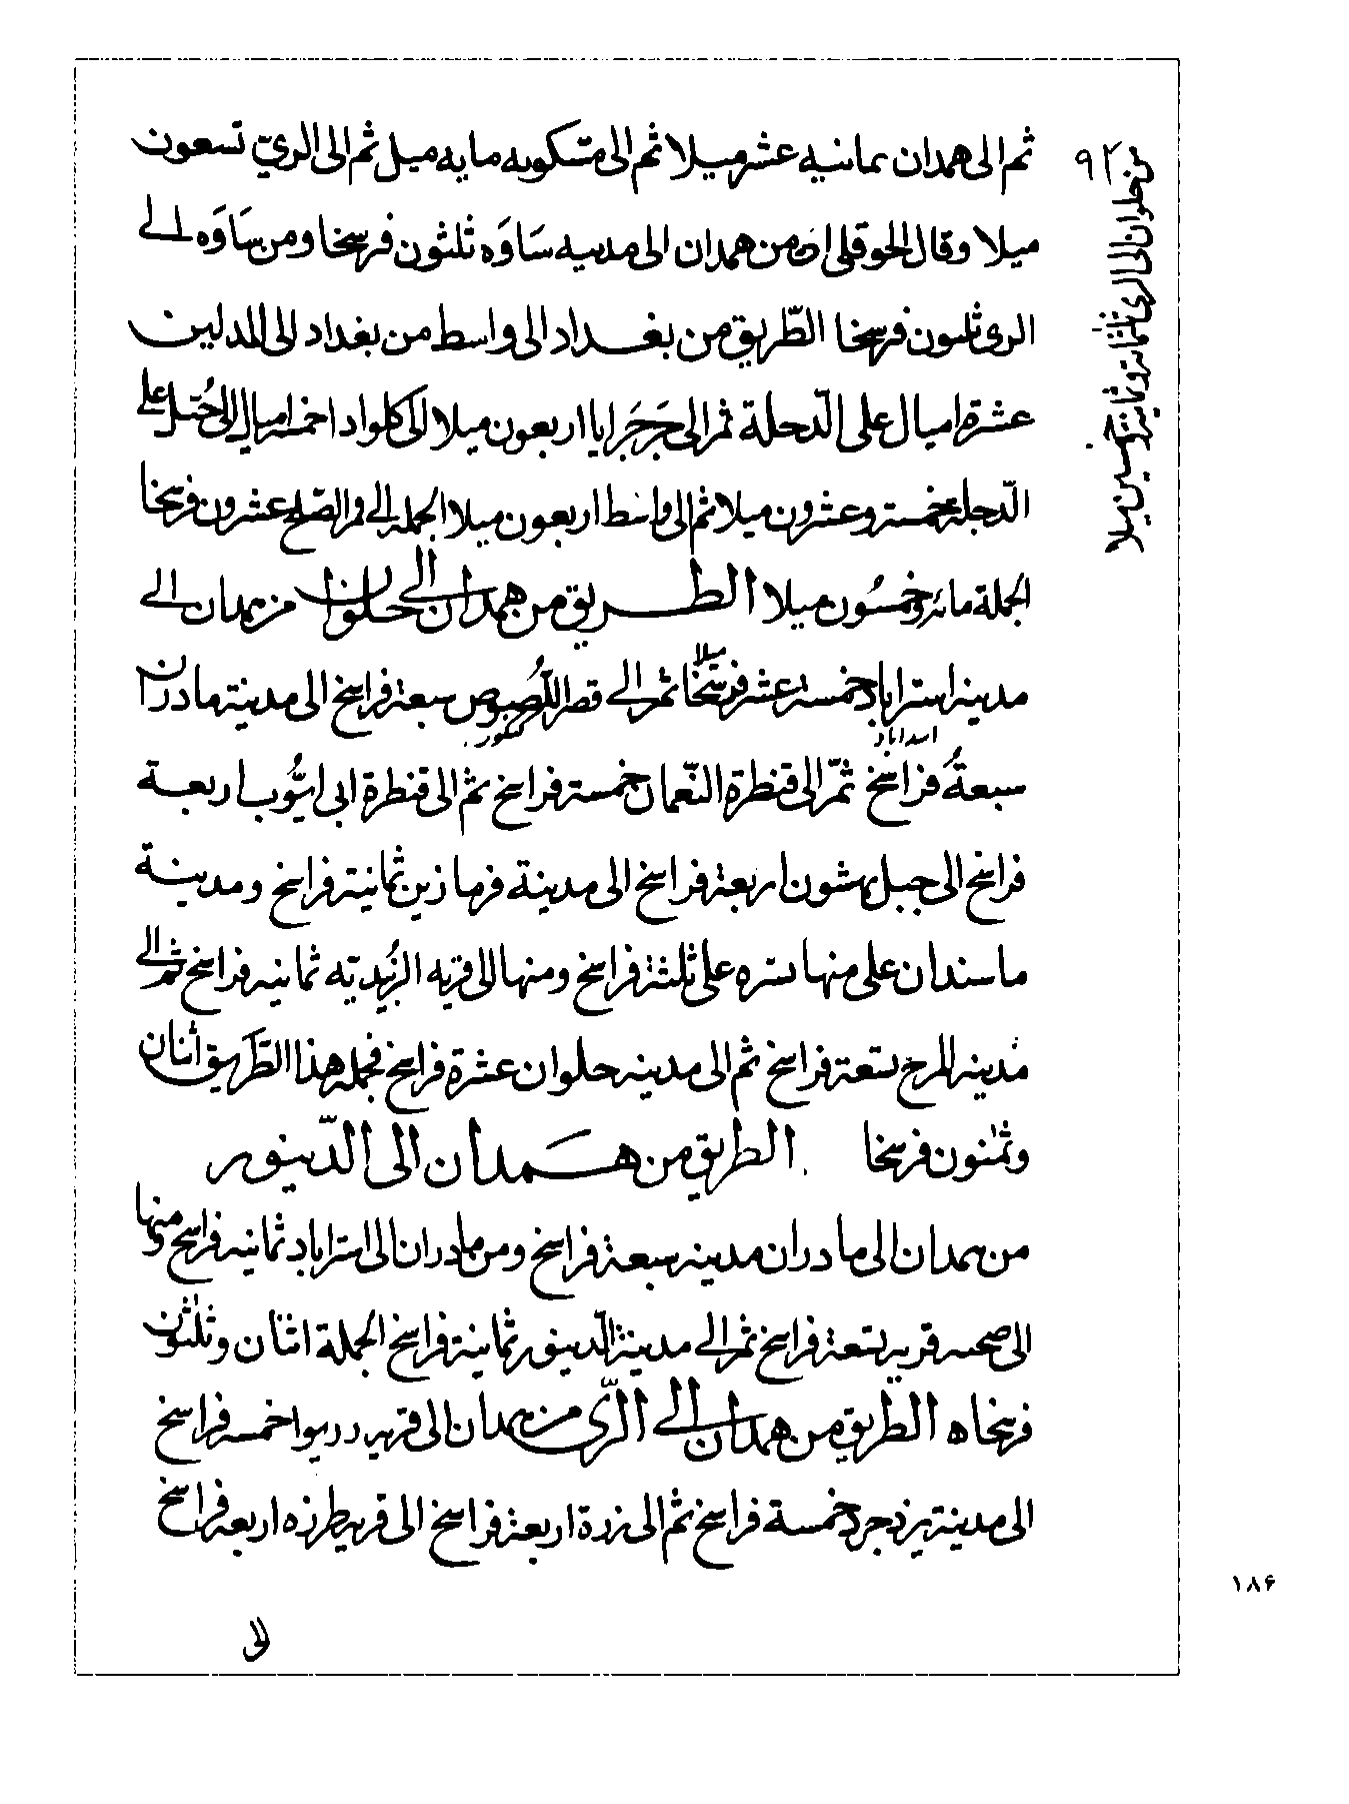 ثم الى همدان ثمانيه عشر ميلا ثم الى متسكويه مايه ميل ثم الى الريّ تسعون
ميلا وقال الحوقلى ان من همدان الى مدينه سَاوَه ثلثون فرسخا ومن سَاوَه الى
الرى ثلثون فرسخا الطّريق من بغداد الى واسط من بغداد الى المداين
عشرة اميال على الدّجلة ثم الى جَرجَرايا اربعون ميلا الى كلواذا خمسة اميال الى جُبّل على
الدّجلة خمسة وعشرون ميلا ثم الى واسط اربعون ميلا الجملة الى فم الصّلح عشرون فرسخا
الجملة مائة وخمسُون ميلا الطريق من همدان الى حلوان من همدان الى
مدينة استراباد خمسة عشر فرسخا ثم الى قصر اللّصُوص سبعة فراسخ الى مدينة مادران
ميلا
اسداباذ
كنكور
سبعةُ فراسخ ثمّ الى قنطرة النّعمان خمسة فراسخ ثم الى قنطرة ابى ايّوب اربعة
فراسخ الى جبل بهشون اربعة فراسخ الى مدينة فرماذين ثمانية فراسخ ومدينة
ماسندان على منها يسره على ثلثة فراسخ ومنها الى قريه الزُبيديّه ثمانيه فراسخ ثم الى
مدينه المرج تسعة فراسخ ثم الى مدينه حلوان عشرة فراسخ فجملة هذا الطّريق اثنان
وثمنون فرسخا الطريق من همدان الى الدّينور
من همدان الى مادران مدينه سبعة فراسخ ومن مادران الى استراباد ثمانيه فراسخ ومنها
الى صحنه قرية تسعة فراسخ ثم الى مدينة الدّينور ثمانية فراسخ الجملة اثنان وثلثون
فرسخا ه الطريق من همدان الى الرّى من همدان الى قرية دربوا خمسة فراسخ
الى مدينة يزدجرد خمسة فراسخ ثم الى زرة اربعة فراسخ الى قرية طرزه اربعة فراسخ
الى
٩٢
من حلوان الى الرى ثلثمائة وثمانية وخمسين ميلا
١٨۶